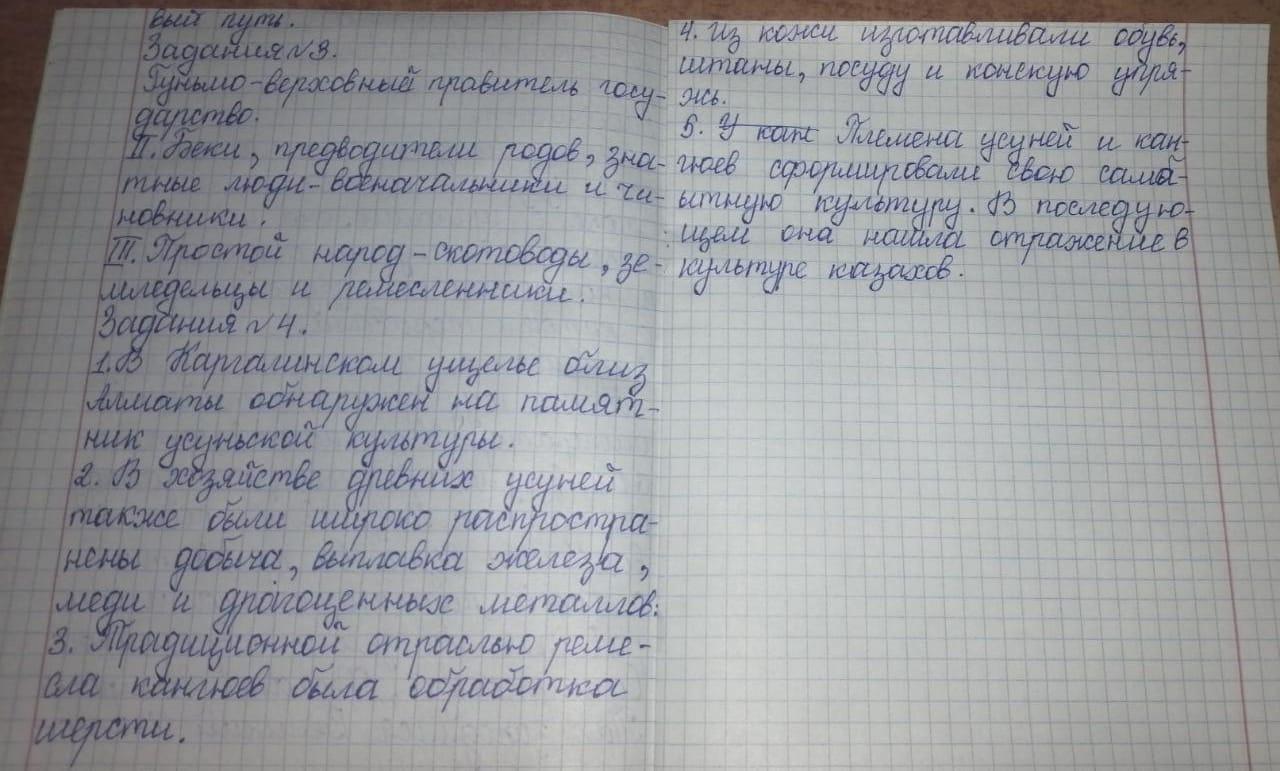 вый путь.
Задания №3.
Гуньмо-верховный правитель госу-
дарство.
II. Беки, предводители родов, зна-
тные люди-военачальники и чи-
новники.
III. Простой народ-скотоводы, зе-
мледельцы и ремесленники.
Задания №4.
1. В Каргалинском ущелье близ
Алматы обнаружен на памят-
ник усуньской культуры.
2. В хозяйстве древних усуней
также были широко распростра-
нены добыча, выплавка железа,
меди и драгоценных металлов:
3. Традиционной отраслью реме-
сла кангюев была обработка
шерсти.
4. Из кожи изготавливали обувь,
штаны, посуду и конскую упря-
жь.
5. У кан Племена усуней и кан-
гюев сформировали свою самоб-
ытную культуру. В последую-
щем она нашла отражение в
культуре казахов.